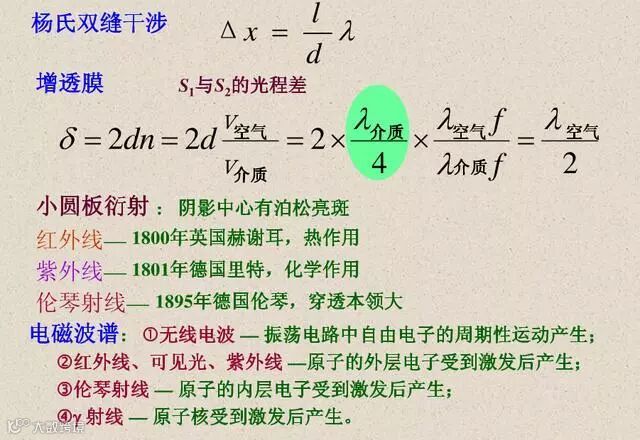 杨氏双缝干涉 Δx = l/d λ
增透膜 S₁与S₂的光程差
δ = 2dn = 2d V空气/V介质 = 2 × λ介质/4 × λ空气f/λ介质f = λ空气/2
小圆板衍射： 阴影中心有泊松亮斑
红外线— 1800年英国赫谢耳，热作用
紫外线— 1801年德国里特，化学作用
伦琴射线— 1895年德国伦琴，穿透本领大
电磁波谱：①无线电波 — 振荡电路中自由电子的周期性运动产生；
②红外线、可见光、紫外线 —原子的外层电子受到激发后产生；
③伦琴射线 — 原子的内层电子受到激发后产生；
④γ射线 — 原子核受到激发后产生。
大数跨境